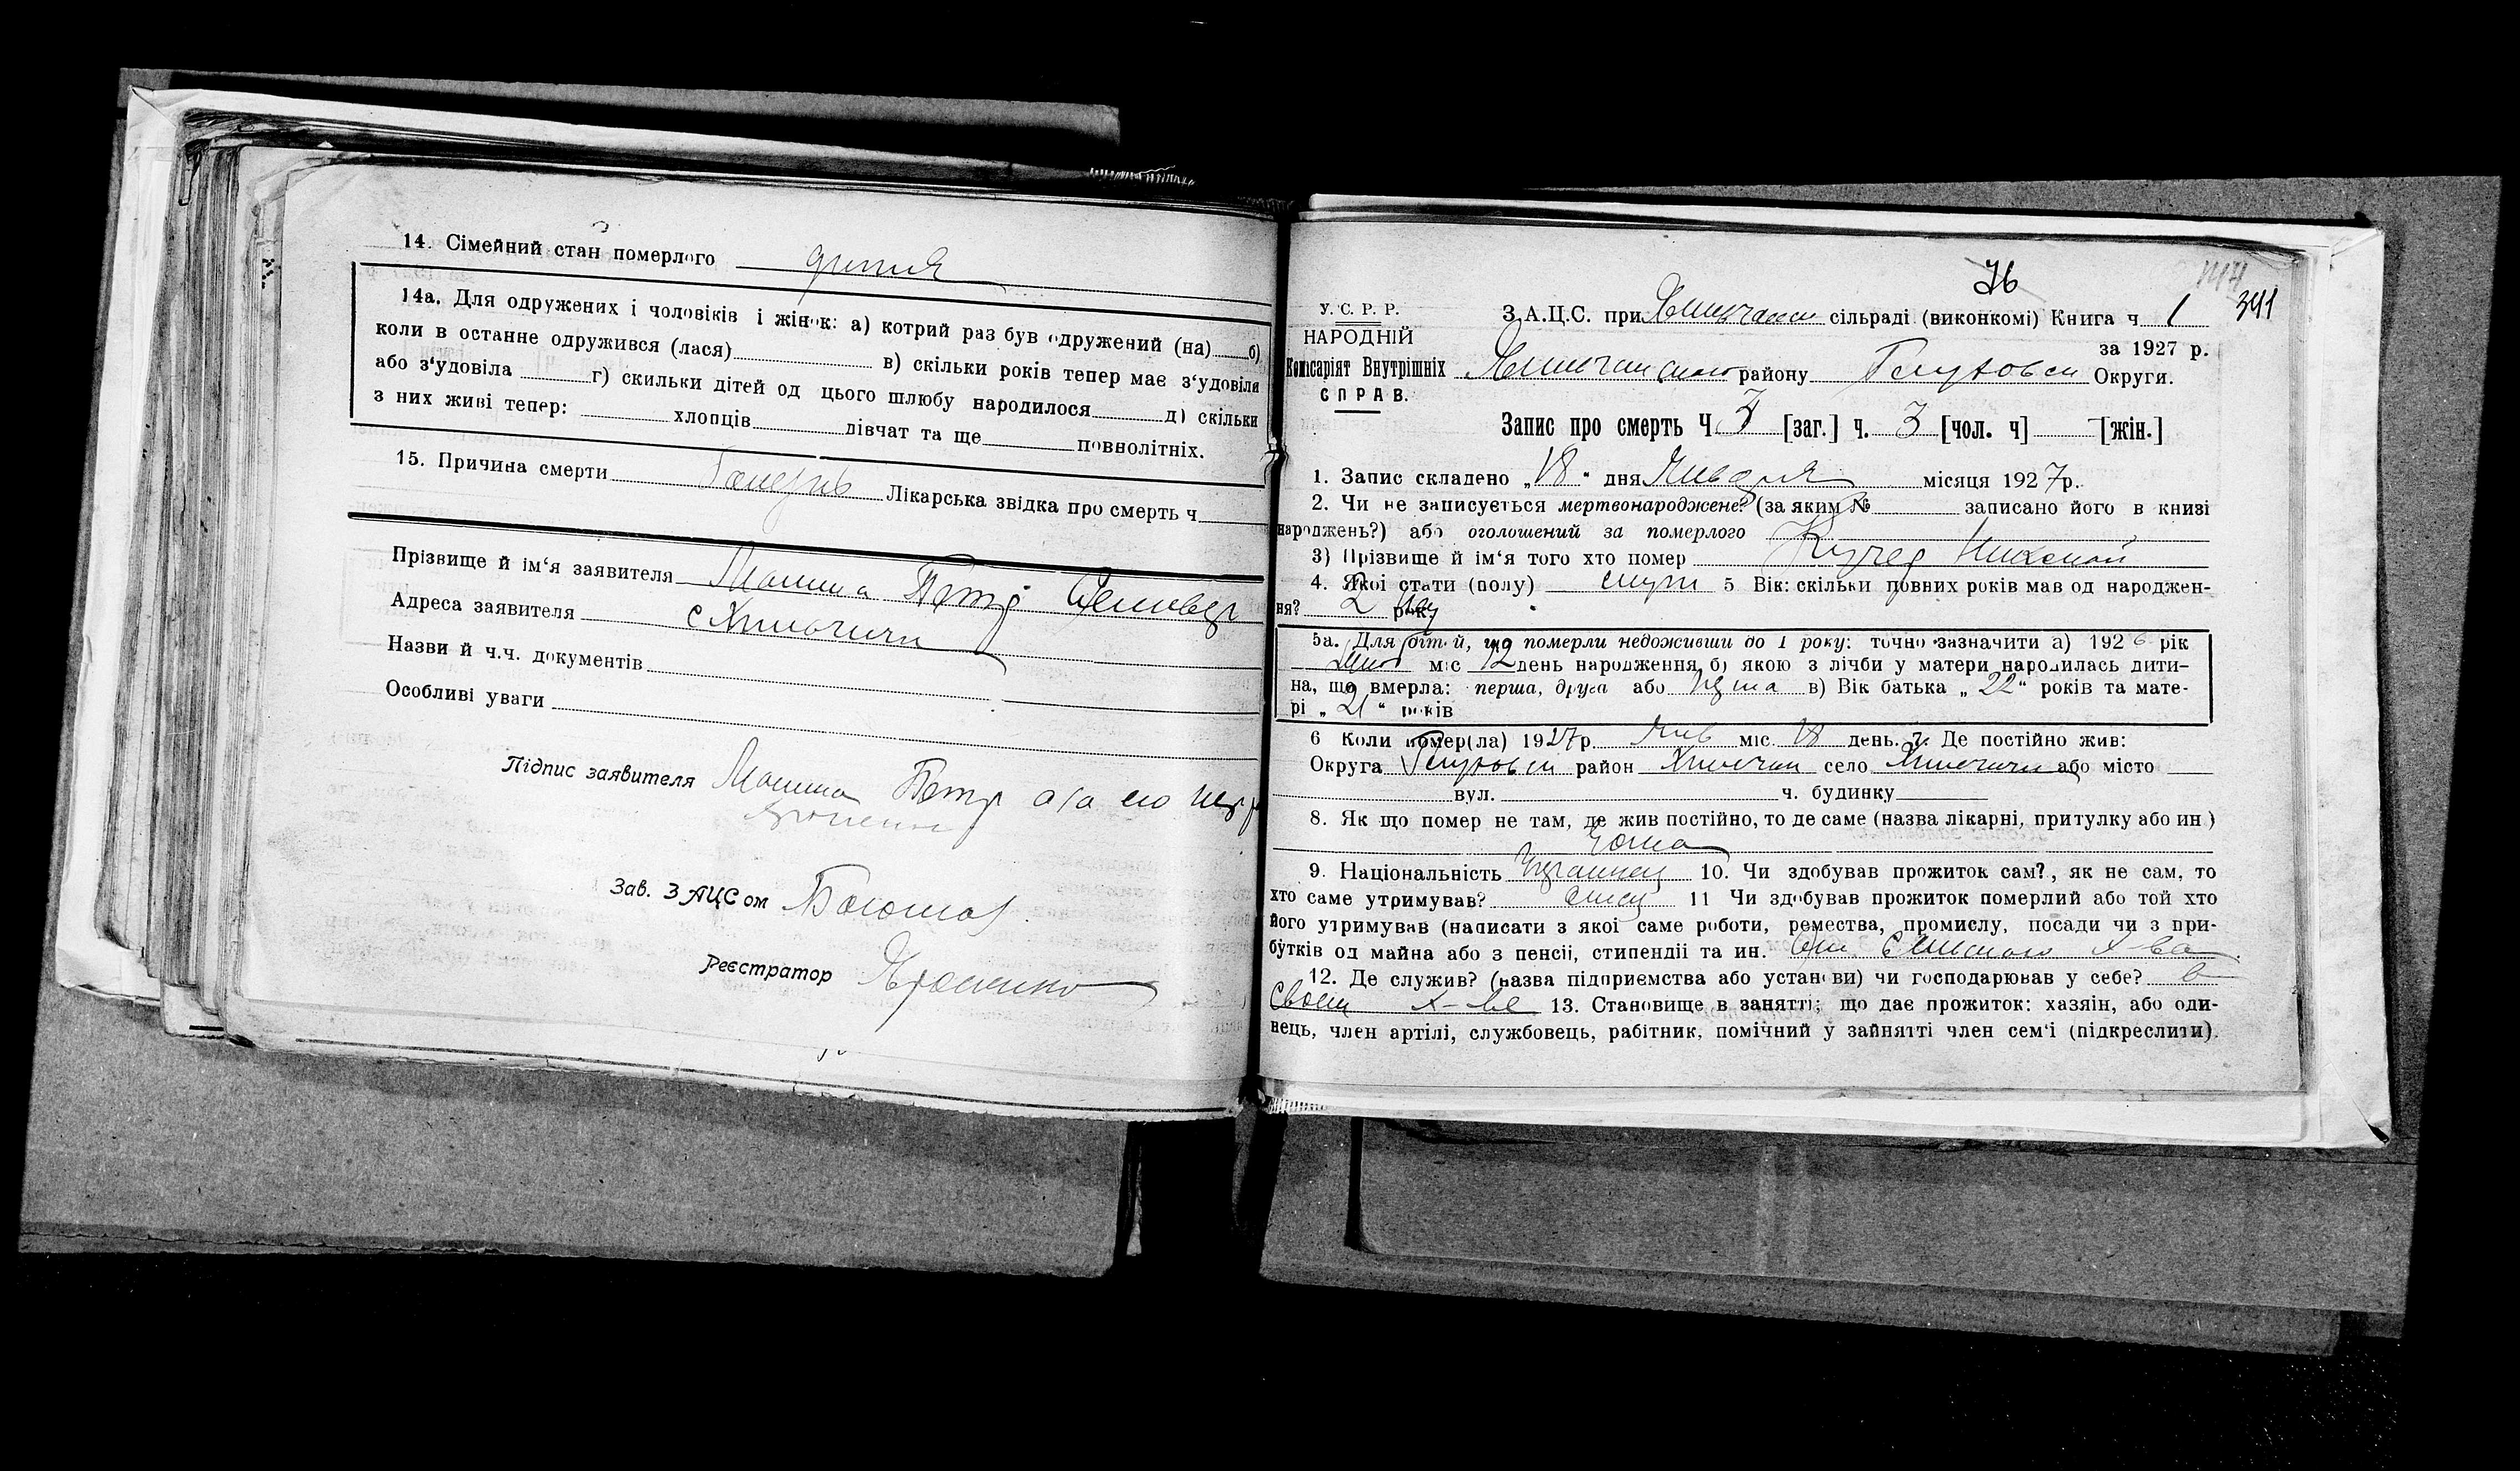 14. Сімейний стан померлого дитя
14а. Для одружених і чоловіків і жінок: а) котрий раз був одружений (на) б)
коли в останне одружився (лася) в) скільки років тепер має з‘удовіля
або з‘удовіла г) скильки дітей од цього шлюбу народилося д) скільки
з них живі тепер: хлопців дівчат та ще повнолітніх.
15. Причина смерти Лікарська звідка про смерть ч
Прізвище й ім‘я заявителя Петр
Адреса заявителя с Хильчичи
Назви й ч.ч. документів
Особливі уваги
Підпис заявителя Петр а за его
Зав. ЗАЦСом
Реєстратор Ярошенко
76
391
У. С. Р. Р.
НАРОДНІЙ
Комісаріят Внутрішніх
СПРАВ.
З.А.Ц.С. при сільраді (виконкомі) Книга ч 1
за 1927 р.
району Глуховск Округи.
Запис про смерть Ч 3 [заг.] ч. 3 [чол. ч] - [жін.]
1. Запис складено „18“ дня Января місяця 1927р.
2. Чи не записується мертвонароджене? (за яким № записано його в книзі
народжень?) або оголошений за померлого
3) Прізвище й ім‘я того хто помер Кучер Николай
4. Якої стати (полу) 5 Вік: скільки повних років мав од народжен-
ня? 2 року
5а. Для дітей, що померли недоживши до 1 року: точно зазначити а) 1926 рік
міс 12 день народження б) якою з лічби у матери народилась дити-
на, що вмерла: перша, друга або в) Вік батька „22“ років та мате-
рі „21“ років
6 Коли помер(ла) 1927р Янв міс. 18 день. 7. Де постійно жив:
Округа Глуховск район Хильчан село Хильчичи або місто
вул. ч. будинку
8. Як що помер не там, де жив постійно, то де саме (назва лікарні, притулку або ин)
дома
9. Національність Украинец 10. Чи здобував прожиток сам?, як не сам, то
хто саме утримував? отец 11 Чи здобував прожиток померлий або той хто
його утримував (написати з якої саме роботи, ремества, промислу, посади чи з при-
бутків од майна або з пенсії, стипендії та ин. От Сельского х-ва
12. Де служив? (назва підприемства або установи) чи господарював у себе? в
своем х-ве 13. Становище в занятті; що дає прожиток: хазяін, або оди-
нець, член артілі, службовець, рабітник, помічний у зайнятті член сем‘і (підкреслити).